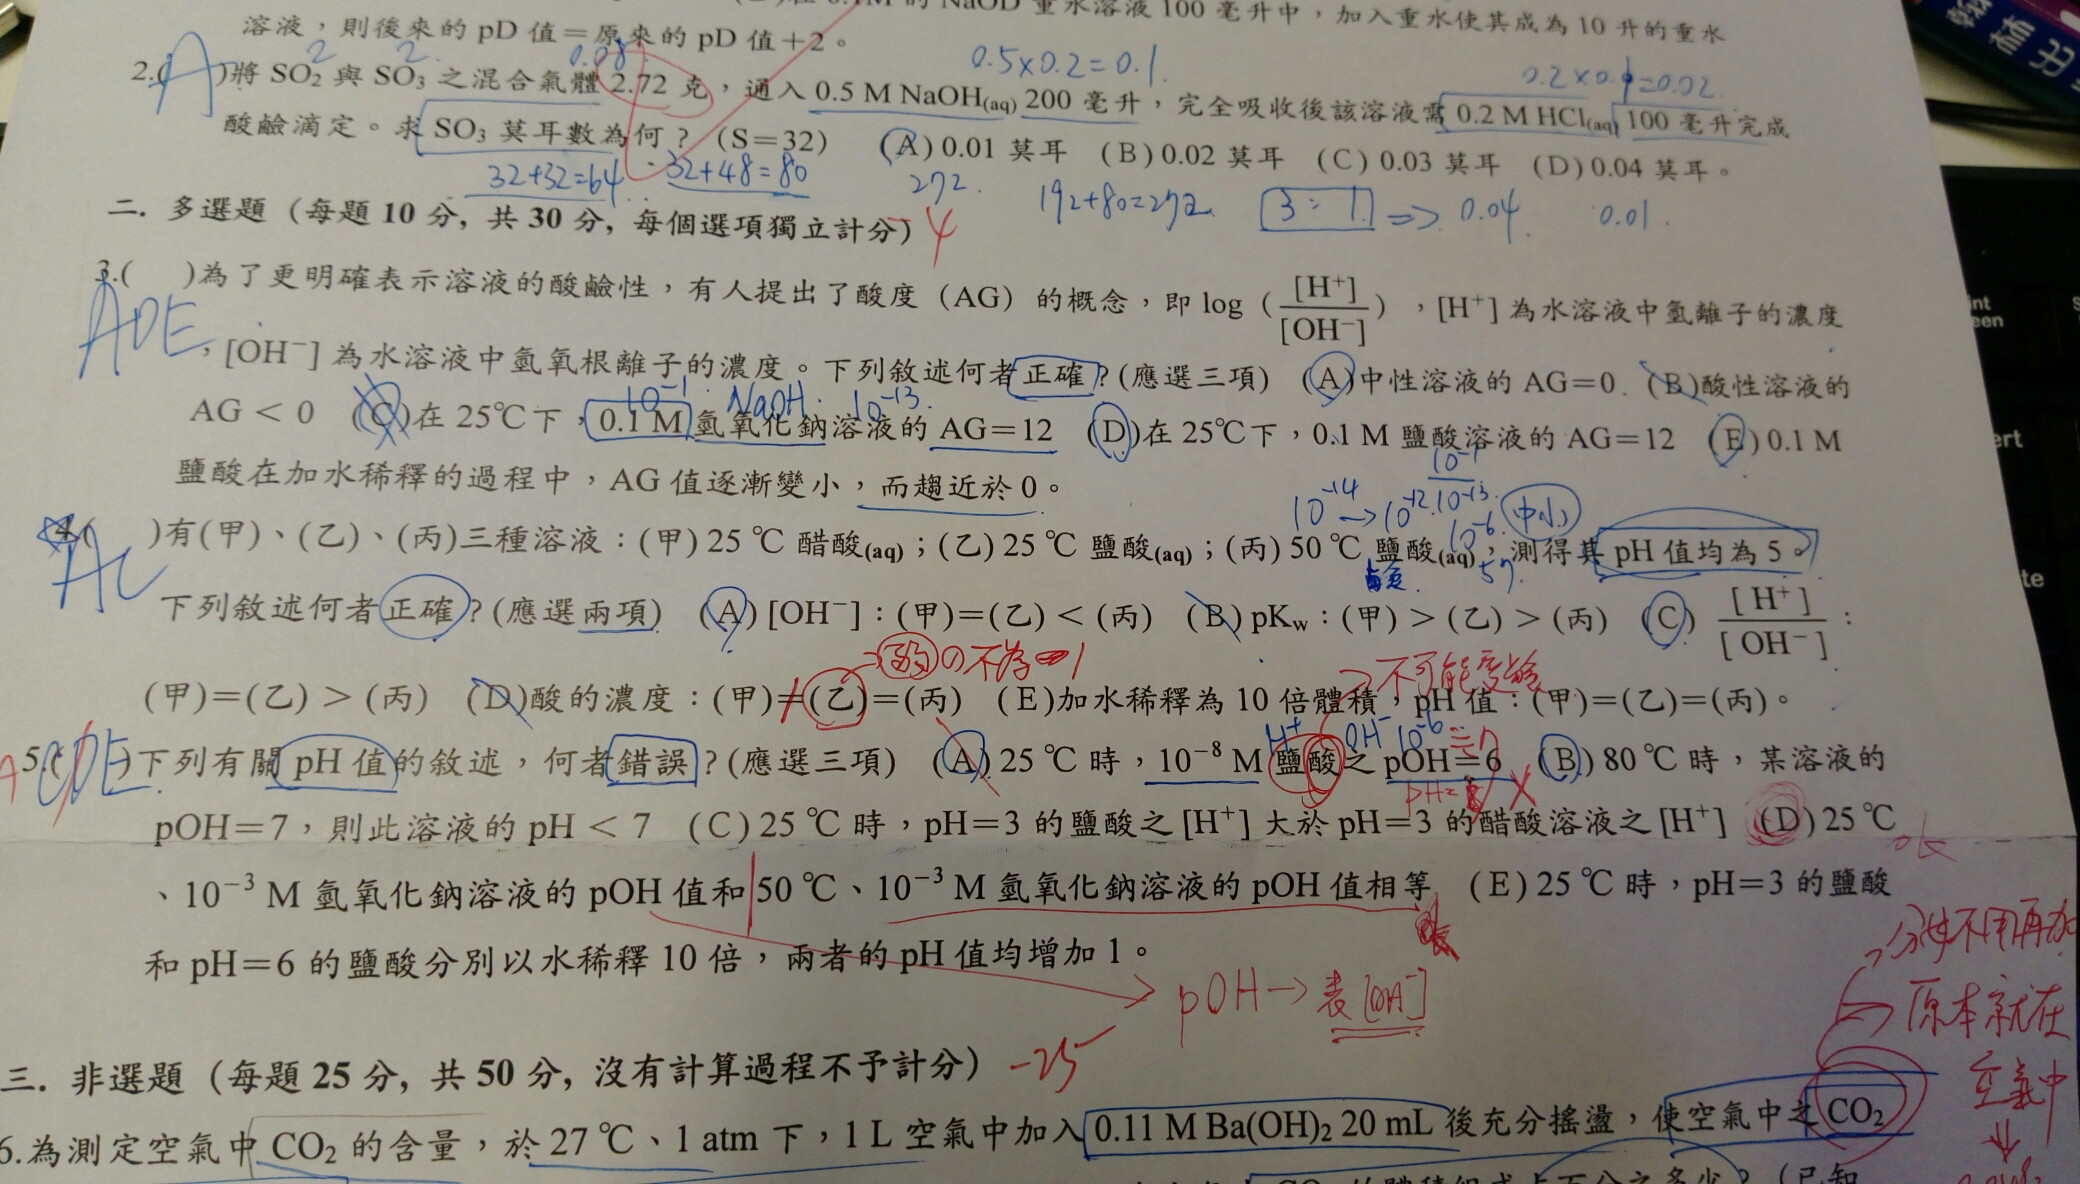 0.1M 的 NaOD 重水溶液 100 毫升中，加入重水使其成為 10 升的重水
溶液，則後來的 pD 值＝原來的 pD 值＋2。
2 2 0.08 0.5×0.2=0.1 0.2×0.1=0.02
2.( A )將 SO₂ 與 SO₃ 之混合氣體 2.72 克，通入 0.5 M NaOH(aq) 200 毫升，完全吸收後該溶液需 0.2 M HCl(aq) 100 毫升完成
酸鹼滴定。求 SO₃ 莫耳數為何？(S＝32) (A) 0.01 莫耳 (B) 0.02 莫耳 (C) 0.03 莫耳 (D) 0.04 莫耳。
32+32=64 32+48=80 272 192+80=272 3:1 => 0.04 0.01
二. 多選題（每題 10 分, 共 30 分, 每個選項獨立計分） -4
3.( )為了更明確表示溶液的酸鹼性，有人提出了酸度（AG）的概念，即 log（[H⁺]/[OH⁻]），[H⁺] 為水溶液中氫離子的濃度
ADE
，[OH⁻] 為水溶液中氫氧根離子的濃度。下列敘述何者正確？(應選三項) (A)中性溶液的 AG＝0 (B)酸性溶液的
10⁻¹ NaOH 10⁻¹³
AG＜0 (C)在 25℃下，0.1 M 氫氧化鈉溶液的 AG＝12 (D)在 25℃下，0.1 M 鹽酸溶液的 AG＝12 (E) 0.1 M
鹽酸在加水稀釋的過程中，AG 值逐漸變小，而趨近於 0。
10⁻¹
10⁻¹⁴→10⁻¹² 10⁻¹³ 10⁻⁶ 中小
4.( )有(甲)、(乙)、(丙)三種溶液：(甲) 25 ℃ 醋酸(aq)；(乙) 25 ℃ 鹽酸(aq)；(丙) 50 ℃ 鹽酸(aq)，測得其 pH 值均為 5。
AC
下列敘述何者正確？(應選兩項) (A) [OH⁻]：(甲)＝(乙)＜(丙) (B) pKw：(甲)＞(乙)＞(丙) (C) [H⁺]/[OH⁻]：
不可能變鹼
(甲)＝(乙)＞(丙) (D)酸的濃度：(甲)＝(乙)＝(丙) (E)加水稀釋為 10 倍體積，pH 值：(甲)＝(乙)＝(丙)。
H⁺ OH⁻ 10⁻⁶
5.( CDE )下列有關 pH 值的敘述，何者錯誤？(應選三項) (A) 25 ℃ 時，10⁻⁸ M 鹽酸之 pOH＝6 (B) 80 ℃ 時，某溶液的
pOH＝7，則此溶液的 pH＜7 (C) 25 ℃ 時，pH＝3 的鹽酸之 [H⁺] 大於 pH＝3 的醋酸溶液之 [H⁺] (D) 25 ℃ ok
、10⁻³ M 氫氧化鈉溶液的 pOH 值和 50 ℃、10⁻³ M 氫氧化鈉溶液的 pOH 值相等 (E) 25 ℃ 時，pH＝3 的鹽酸
和 pH＝6 的鹽酸分別以水稀釋 10 倍，兩者的 pH 值均增加 1。
不用再加
pOH→表[OH⁻]
原本就在
空氣中
三. 非選題（每題 25 分, 共 50 分, 沒有計算過程不予計分） -25
6.為測定空氣中 CO₂ 的含量，於 27 ℃、1 atm 下，1 L 空氣中加入 0.11 M Ba(OH)₂ 20 mL 後充分搖盪，使空氣中之 CO₂